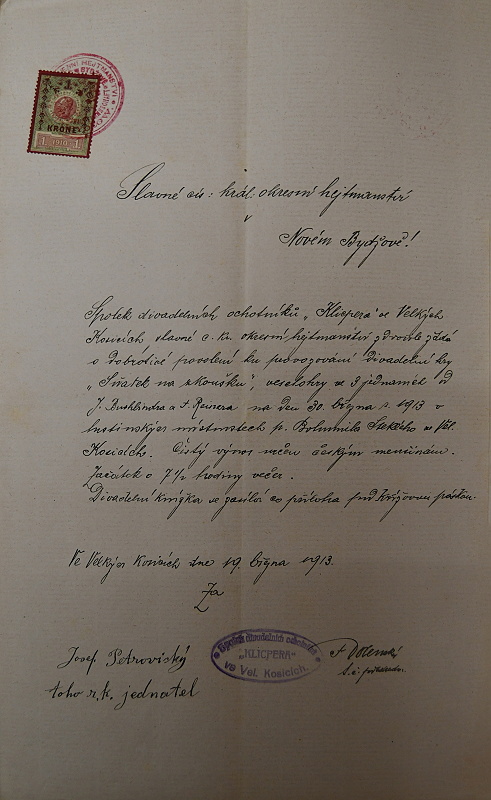 1
KRONE
1 1910 1
Slavné cís: král: okresní hejtmanství
v
Novém Bydžově!
Spolek divadelních ochotníků „Klicpera" ve Velkých
Kosicích slavné c. kr. okresní hejtmanství zdvořile žádá
o dobrotivé povolení ku provozování divadelní hry
„Sňatek na zkoušku", veselohry ve 3 jednáních od
J. a F. na den 30. března r. 1913 v
hostinských místnostech p. Bohumila ve Vel.
Kosicích. Čistý výnos věnu českým menšinám.
Začátek o 7½ hodině večer.
Divadelní knížka se zasílá co příloha pod křížovou páskou.
Ve Velkých Kosicích dne 19. března 1913.
Za
Spolek divadelních ochotníků
„KLICPERA"
ve Vel. Kosicích.
Josef Petrovický
toho č. k. jednatel